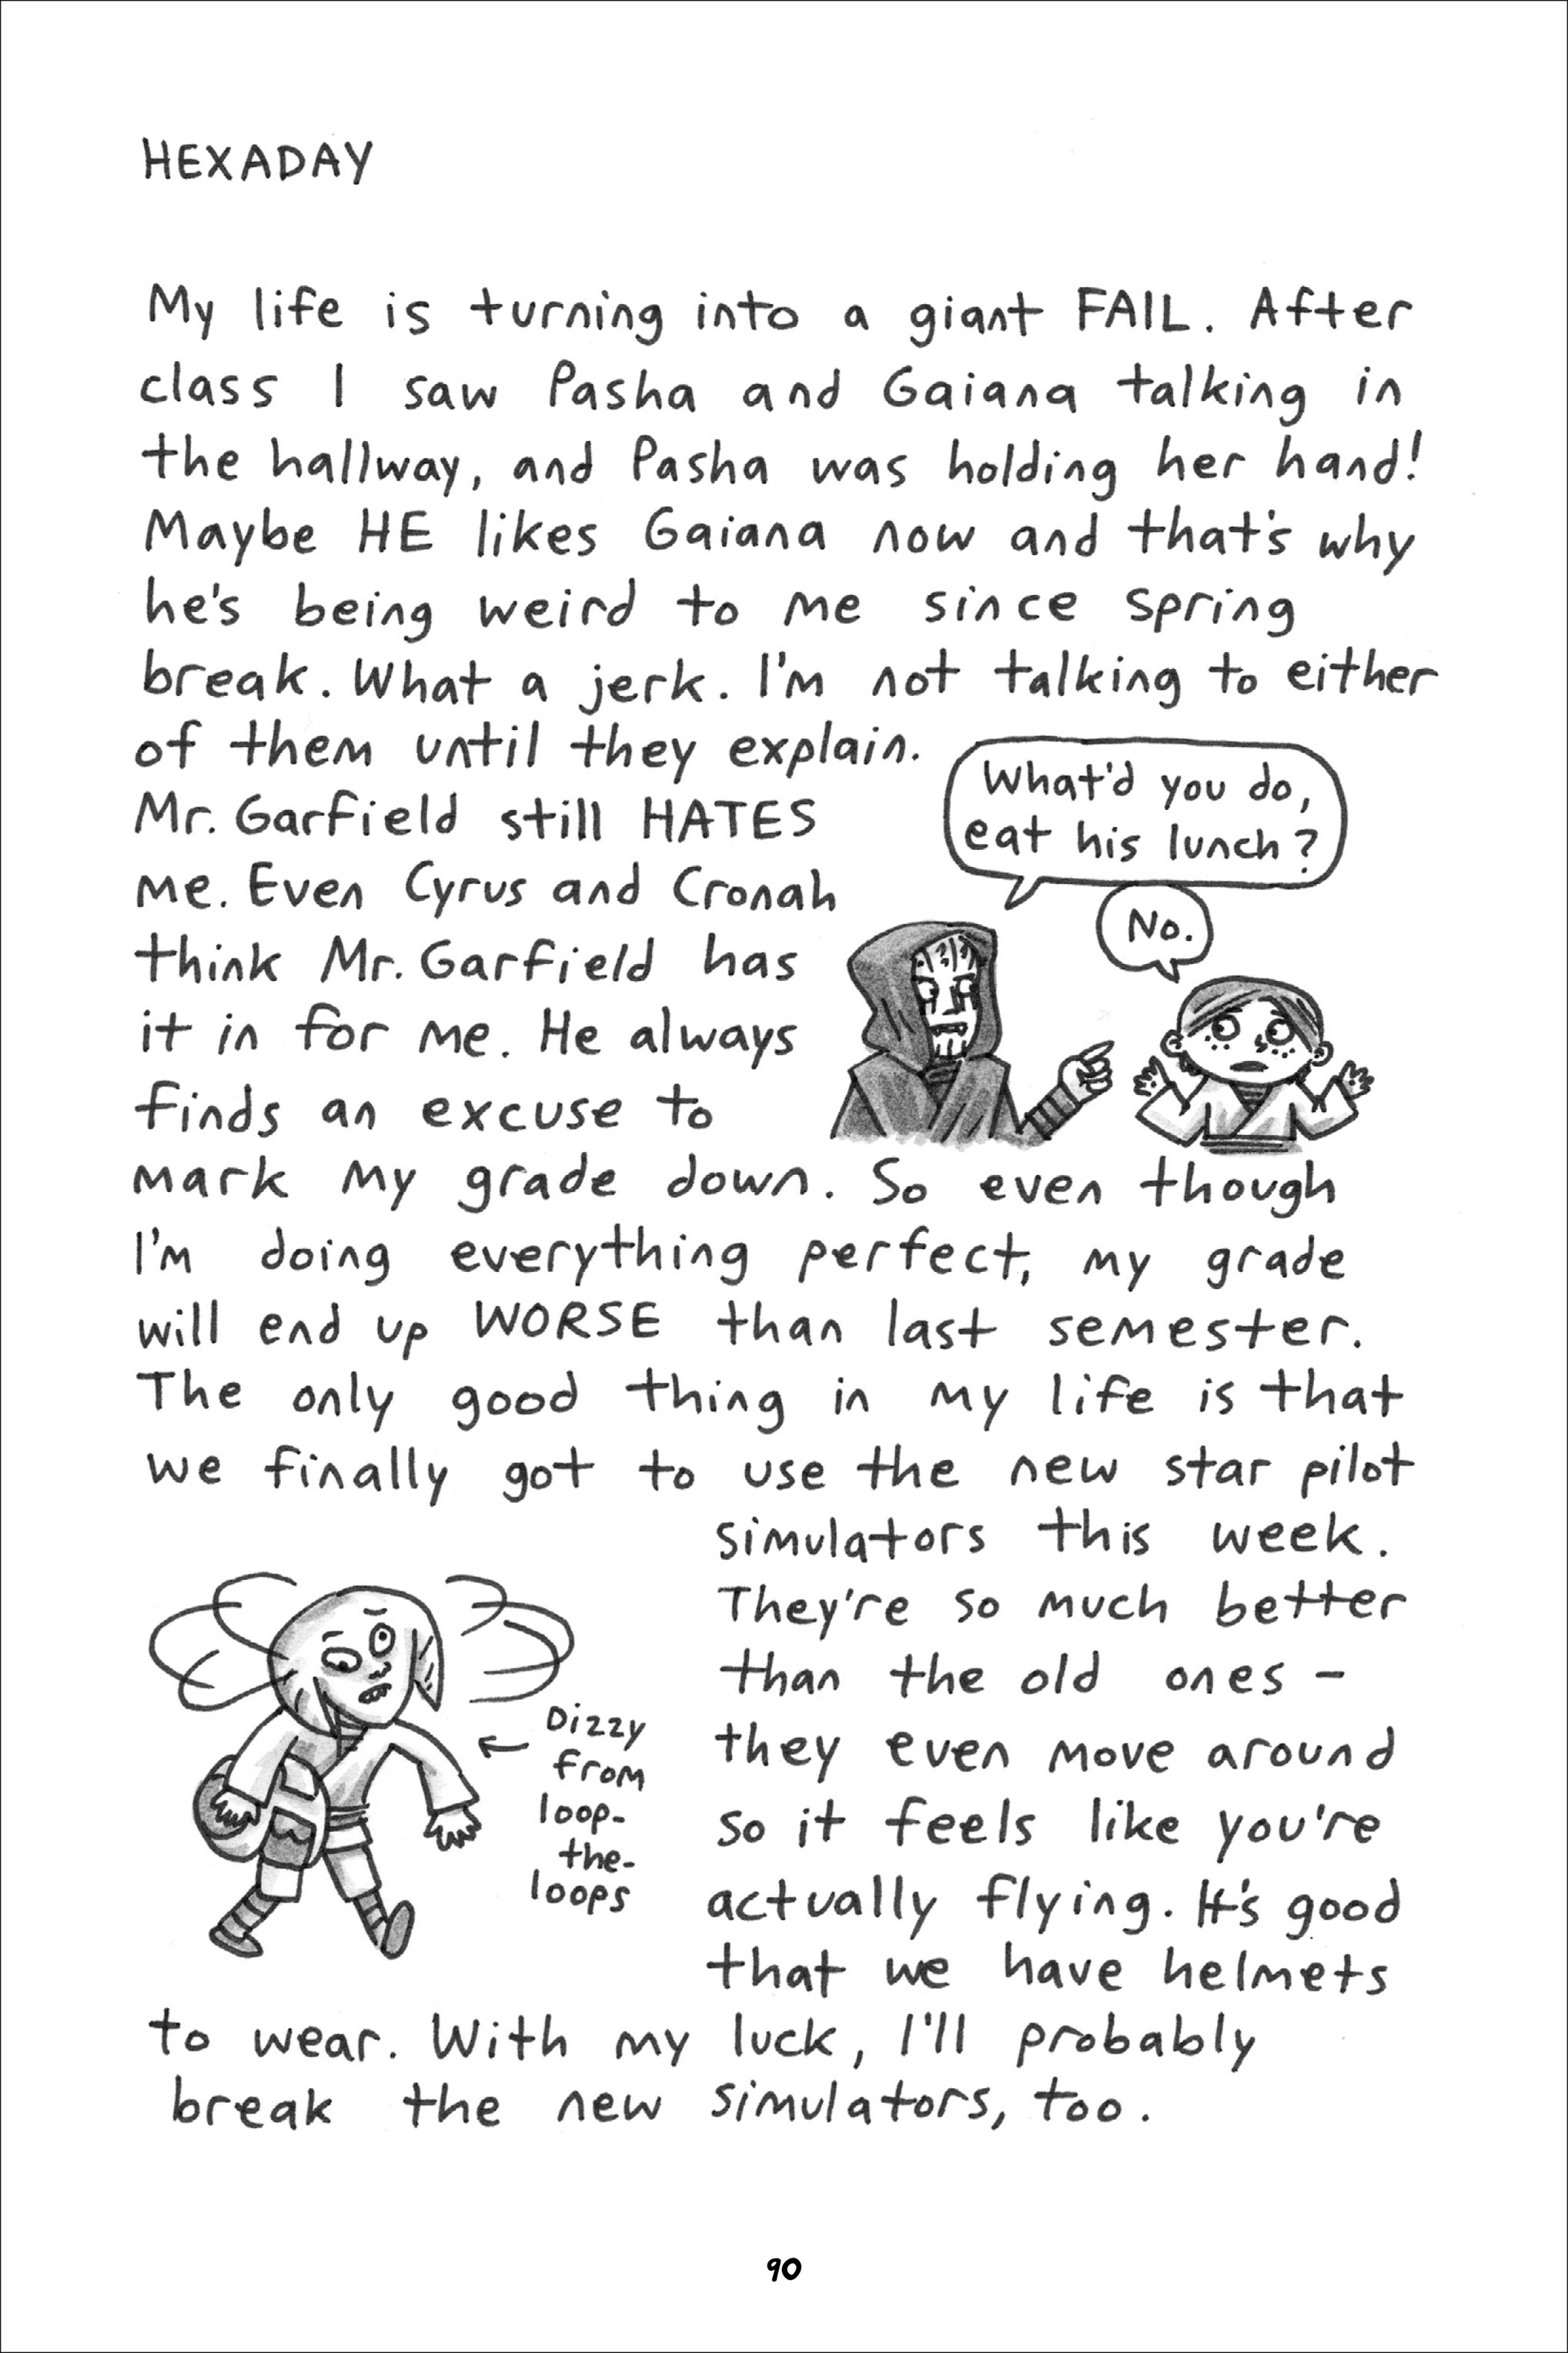 HEXADAY
My life is turning into a giant FAIL. After
class I saw Pasha and Gaiana talking in
the hallway, and Pasha was holding her hand!
Maybe HE likes Gaiana now and that's why
he's being weird to me since spring
break. What a jerk. I'm not talking to either
of them until they explain.
Mr. Garfield still HATES
me. Even Cyrus and Cronah
think Mr. Garfield has
it in for me. He always
finds an excuse to
mark my grade down. So even though
I'm doing everything perfect, my grade
will end up WORSE than last semester.
The only good thing in my life is that
we finally got to use the new star pilot
simulators this week.
They're so much better
than the old ones -
they even move around
so it feels like you're
actually flying. It's good
that we have helmets
to wear. With my luck, I'll probably
break the new simulators, too.
What'd you do,
eat his lunch?
No.
Dizzy
from
loop-
the-
loops
90